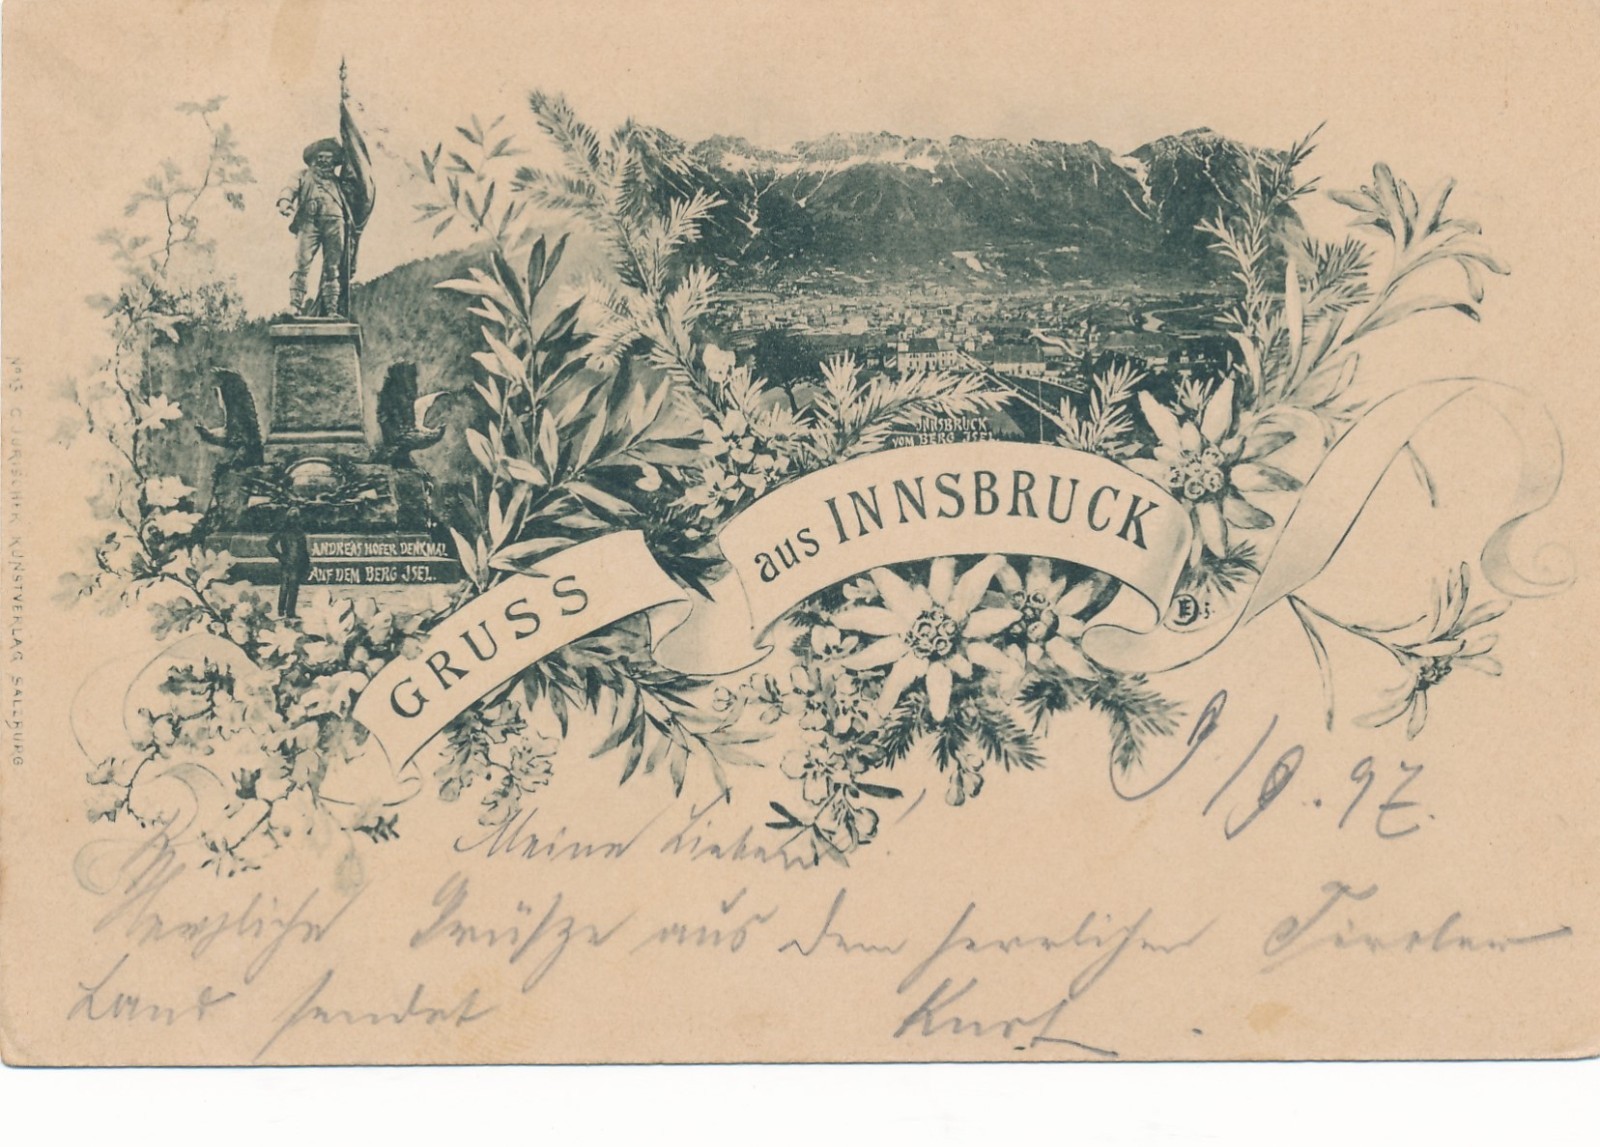 No 13 C. JURISCHEK KUNSTVERLAG SALZBURG
ANDREAS HOFER DENKMAL
AUF DEM BERG JSEL.
INNSBRUCK
VOM BERG JSEL.
GRUSS aus INNSBRUCK
9/9.97.
Meine Lieben!
Herzliche Grüsze aus dem herrlichen Tiroler
Land sendet Kurt.